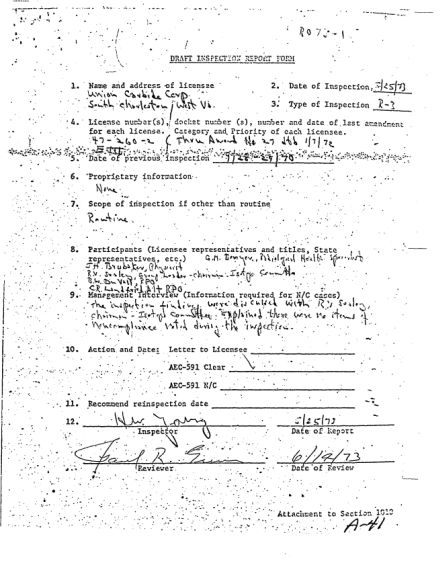 DRAFT INSPECTION REPORT FORM
1. Name and address of licensee
Union Carbide Corp.
South Charleston, West Va.
2. Date of Inspection 5/25/73
3. Type of Inspection R-3
4. License number(s), docket number (s), number and date of last amendment
for each license. Category and Priority of each licensee.
47-260-2 (Thru Amend No 27 dtd 1/7/72
5. Date of previous inspection
6. Proprietary information
None
7. Scope of inspection if other than routine
Routine
8. Participants (Licensee representatives and titles, State
representatives, etc.) G.M.
J.H. Brubaker, Physicist
Group Leader - Chairman - Isotope Committee
RPO
Alt RPO
9. Management interview (Information required for N/C cases)
The inspection findings were discussed with
Chairman - Isotope Committee. Explained there were no items of
noncompliance noted during the inspection.
10. Action and Date: Letter to Licensee
AEC-591 Clear
AEC-591 N/C
11. Recommend reinspection date
12. 5/25/73
Inspector Date of Report
6/14/73
Reviewer Date of Review
Attachment to Section 1012
A-41